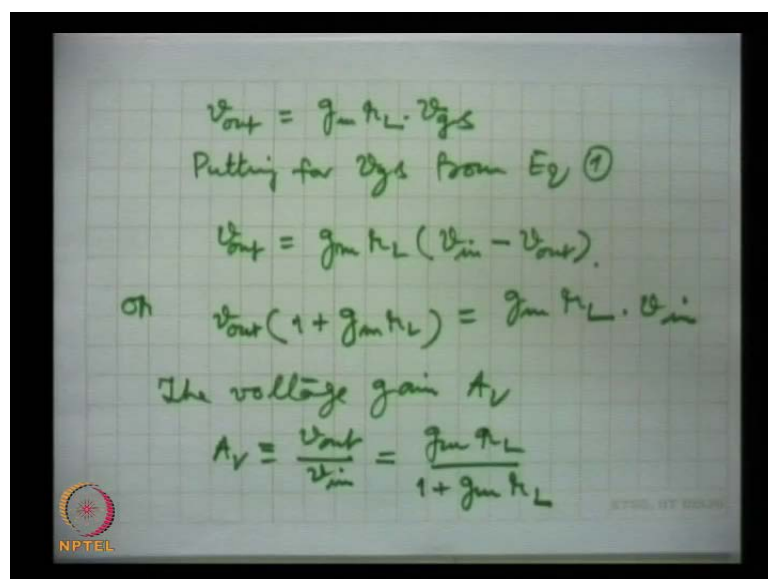 v_out = g_m r_L . v_gs
Putting for v_gs from Eq ①
v_out = g_m r_L (v_in - v_out).
or v_out (1 + g_m r_L) = g_m r_L . v_in
The voltage gain A_V
A_V ≡ v_out / v_in = g_m r_L / 1 + g_m r_L
NPTEL